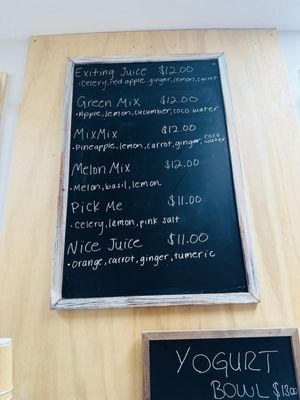 Exiting Juice $12.00
• celery, red apple, ginger, lemon, carrot
Green Mix $12.00
• Apple, lemon, cucumber, coco water
MixMix $12.00
• Pineapple, lemon, carrot, ginger, coco water
Melon Mix $12.00
• Melon, basil, lemon
Pick Me $11.00
• celery, lemon, pink salt
Nice Juice $11.00
• orange, carrot, ginger, tumeric
YOGURT
BOWL $13.00